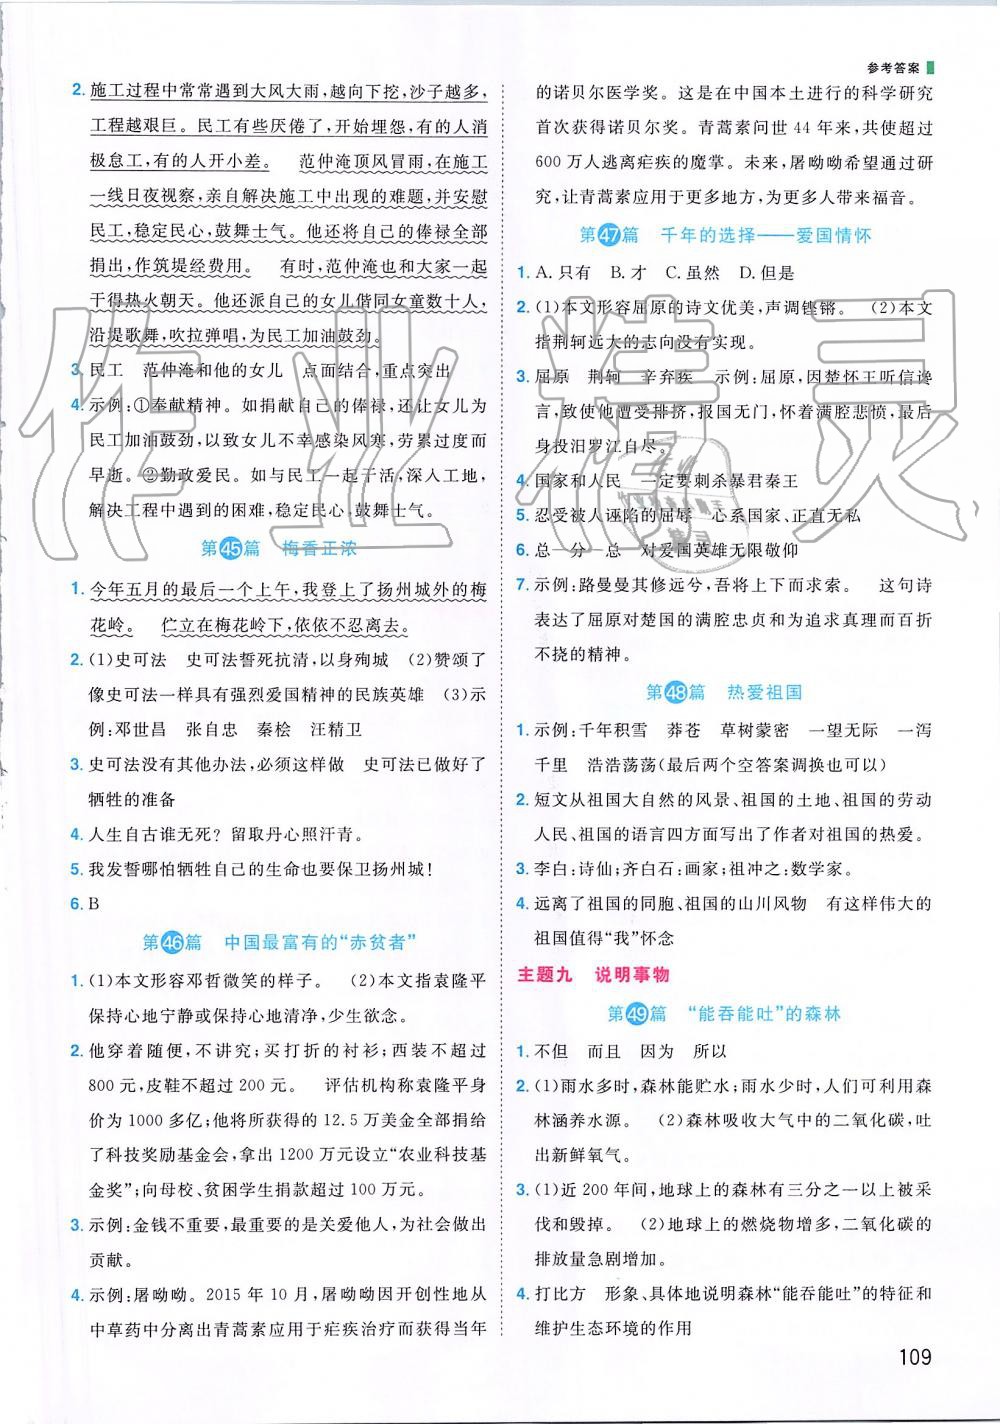 参考答案
2. 施工过程中常常遇到大风大雨,越向下挖,沙子越多,
工程越艰巨。民工有些厌倦了,开始埋怨,有的人消
极怠工,有的人开小差。 范仲淹顶风冒雨,在施工
一线日夜视察,亲自解决施工中出现的难题,并安慰
民工,稳定民心,鼓舞士气。他还将自己的俸禄全部
捐出,作筑堤经费用。 有时,范仲淹也和大家一起
干得热火朝天。他还派自己的女儿偕同女童数十人,
沿堤歌舞,吹拉弹唱,为民工加油鼓劲。
3. 民工 范仲淹和他的女儿 点面结合,重点突出
4. 示例:①奉献精神。如捐献自己的俸禄,还让女儿为
民工加油鼓劲,以致女儿不幸感染风寒,劳累过度而
早逝。②勤政爱民。如与民工一起干活,深入工地,
解决工程中遇到的困难,稳定民心,鼓舞士气。
第45篇 梅香正浓
1. 今年五月的最后一个上午,我登上了扬州城外的梅
花岭。 伫立在梅花岭下,依依不忍离去。
2. (1)史可法 史可法誓死抗清,以身殉城 (2)赞颂了
像史可法一样具有强烈爱国精神的民族英雄 (3)示
例:邓世昌 张自忠 秦桧 汪精卫
3. 史可法没有其他办法,必须这样做 史可法已做好了
牺牲的准备
4. 人生自古谁无死?留取丹心照汗青。
5. 我发誓哪怕牺牲自己的生命也要保卫扬州城!
6. B
第46篇 中国最富有的“赤贫者”
1. (1)本文形容邓哲微笑的样子。 (2)本文指袁隆平
保持心地宁静或保持心地清净,少生欲念。
2. 他穿着随便,不讲究;买打折的衬衫;西装不超过
800 元,皮鞋不超过 200 元。 评估机构称袁隆平身
价为 1000 多亿;他将所获得的 12.5 万美金全部捐给
了科技奖励基金会,拿出 1200 万元设立“农业科技基
金奖”;向母校、贫困学生捐款超过 100 万元。
3. 示例:金钱不重要,最重要的是关爱他人,为社会做出
贡献。
4. 示例:屠呦呦。2015 年 10 月,屠呦呦因开创性地从
中草药中分离出青蒿素应用于疟疾治疗而获得当年
的诺贝尔医学奖。这是在中国本土进行的科学研究
首次获得诺贝尔奖。青蒿素问世 44 年来,共使超过
600 万人逃离疟疾的魔掌。未来,屠呦呦希望通过研
究,让青蒿素应用于更多地方,为更多人带来福音。
第47篇 千年的选择——爱国情怀
1. A.只有 B.才 C.虽然 D.但是
2. (1)本文形容屈原的诗文优美,声调铿锵。 (2)本文
指荆轲远大的志向没有实现。
3. 屈原 荆轲 辛弃疾 示例:屈原,因楚怀王听信谗
言,致使他遭受排挤,报国无门,怀着满腔悲愤,最后
身投汨罗江自尽。
4. 国家和人民 一定要刺杀暴君秦王
5. 忍受被人诬陷的屈辱 心系国家、正直无私
6. 总—分—总 对爱国英雄无限敬仰
7. 示例:路曼曼其修远兮,吾将上下而求索。 这句诗
表达了屈原对楚国的满腔忠贞和为追求真理而百折
不挠的精神。
第48篇 热爱祖国
1. 示例:千年积雪 莽苍 草树蒙密 一望无际 一泻
千里 浩浩荡荡(最后两个空答案调换也可以)
2. 短文从祖国大自然的风景、祖国的土地、祖国的劳动
人民、祖国的语言四方面写出了作者对祖国的热爱。
3. 李白:诗仙;齐白石:画家;祖冲之:数学家。
4. 远离了祖国的同胞、祖国的山川风物 有这样伟大的
祖国值得“我”怀念
主题九 说明事物
第49篇 “能吞能吐”的森林
1. 不但 而且 因为 所以
2. (1)雨水多时,森林能贮水;雨水少时,人们可利用森
林涵养水源。 (2)森林吸收大气中的二氧化碳,吐
出新鲜氧气。
3. (1)近 200 年间,地球上的森林有三分之一以上被采
伐和毁掉。 (2)地球上的燃烧物增多,二氧化碳的
排放量急剧增加。
4. 打比方 形象、具体地说明森林“能吞能吐”的特征和
维护生态环境的作用
109
作业精灵